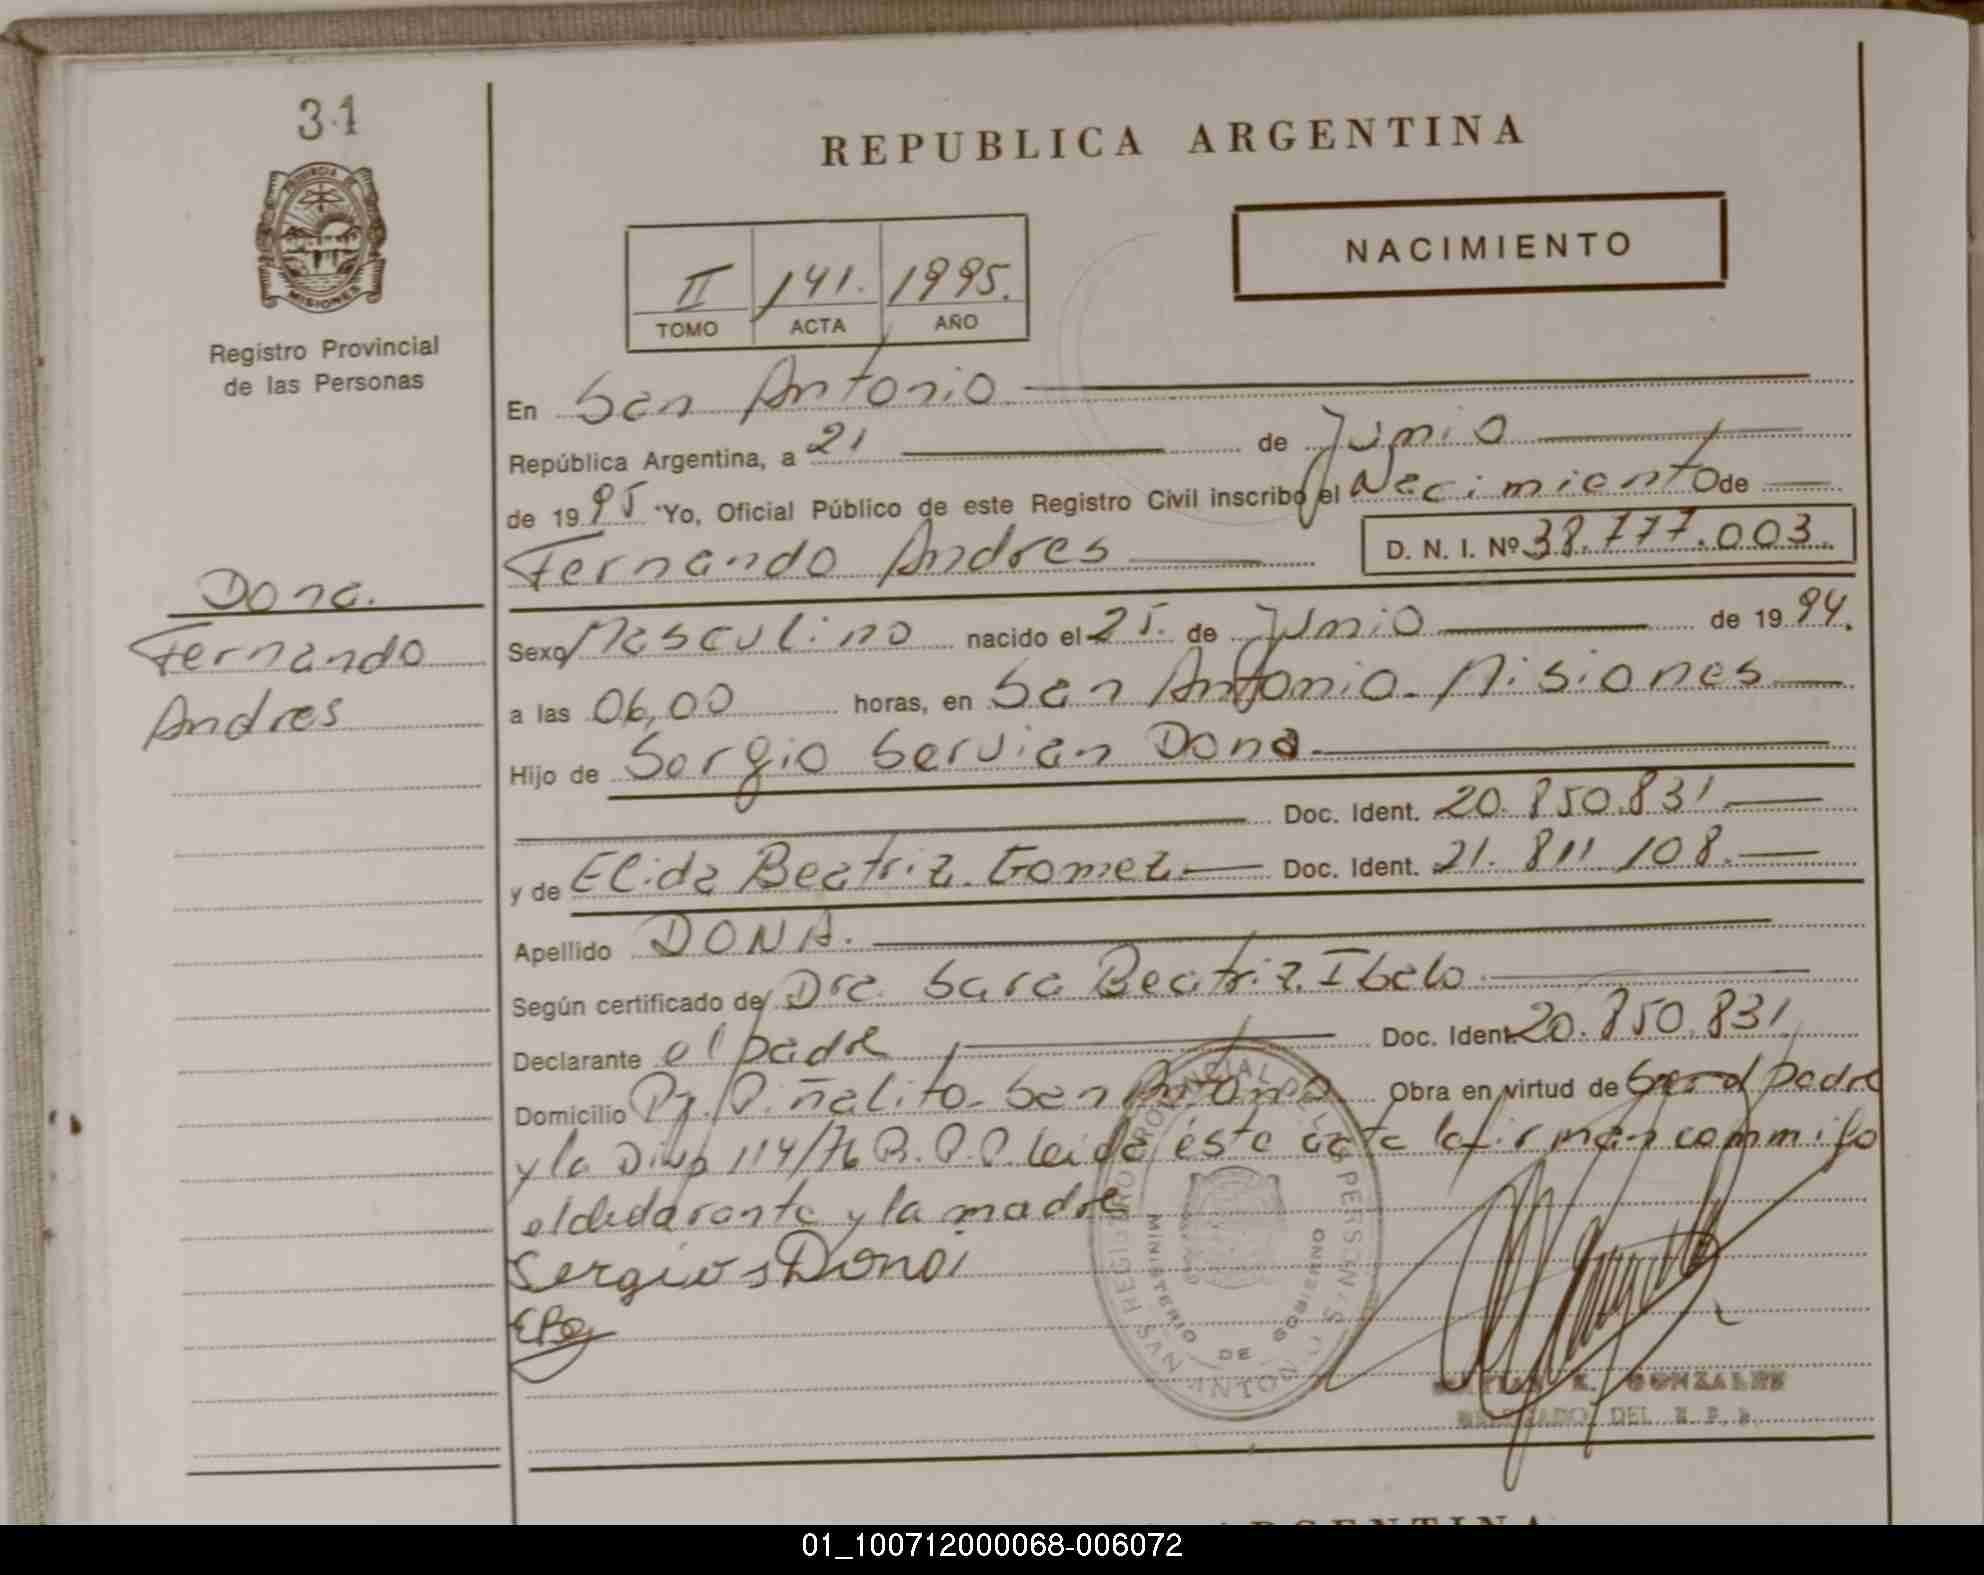 31
PROVINCIA DE
MISIONES
Registro Provincial
de las Personas
REPUBLICA ARGENTINA
NACIMIENTO
II 141. 1995.
TOMO ACTA AÑO
En San Antonio
República Argentina, a 21 de Junio
de 1995 Yo, Oficial Público de este Registro Civil inscribo el Nacimiento de
Fernando Andres D. N. I. Nº 38.777.003.
Dona.
Fernando
Andres
Sexo Masculino nacido el 25. de Junio de 1994.
a las 06,00 horas, en San Antonio. Misiones
Hijo de Sergio Servian Dona
Doc. Ident. 20.850.831
y de Elida Beatriz. Gomez. Doc. Ident. 21.811.108.
Apellido DONA.
Según certificado de Dra. Sara Beatriz. Ibalo
Declarante el padre Doc. Ident. 20.850.831
Domicilio Pj. Piñalito. San Antonio. Obra en virtud de ser el padre
y la Disp 114/76 R.P.P. leida ésta acta la firman conmigo
el declarante y la madre
Sergio s Dona
EBG
REGISTRO PROVINCIAL DE LAS PERSONAS
MINISTERIO DE GOBIERNO
SAN ANTONIO
GONZALES
DELEGADO DEL R. P. P.
ARGENTINA
01_100712000068-006072